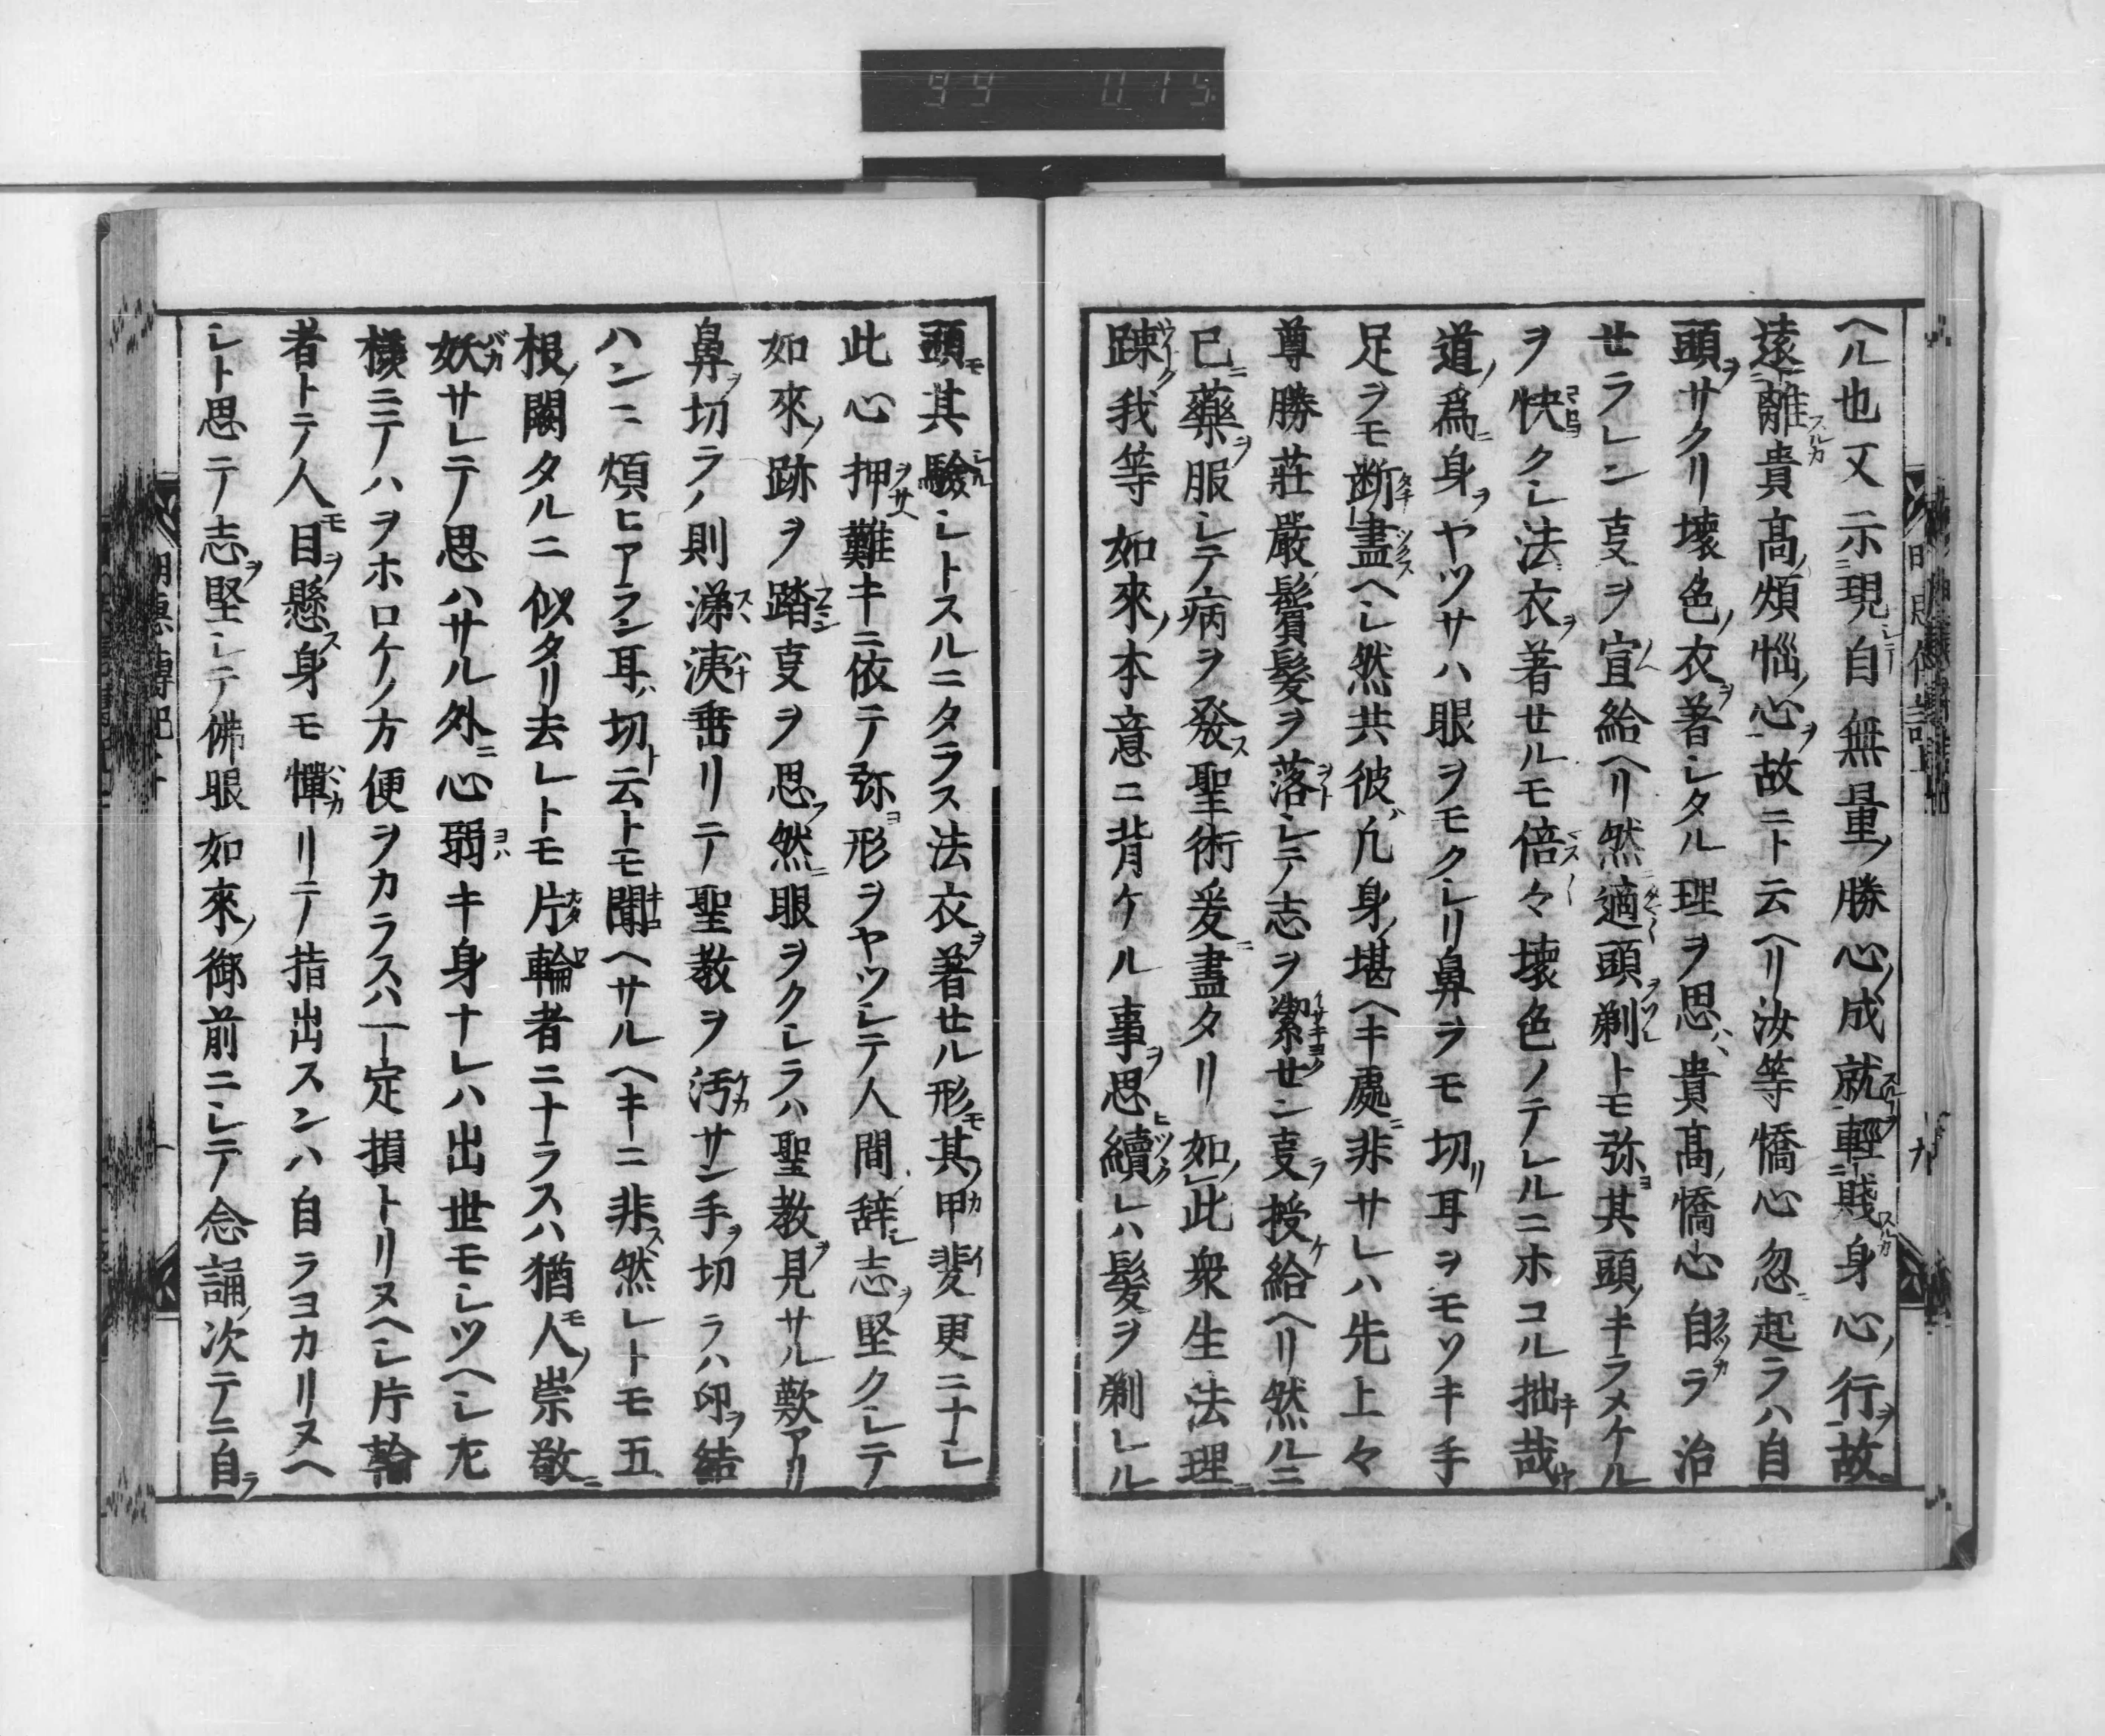 99 015
ヘル也又示現自無量ノ勝心ノ成就輕賤身心ノ行ヲ故
遠離貴高ノ煩惱ノ心ヲ故ニト云ヘリ汝等憍心忽起ラハ自
頭ヲサクリ壞色ノ衣ヲ著シタル理ヲ思ハヽ貴高ノ憍心自ラ治
せラレン叓ヲ宣給ヘリ然適頭剃トモ弥其頭ノキラメケル
ヲ快クシ法衣ヲ著せルモ倍々壞色ノテレルニホコル拙キ哉
道ノ爲ニ身ヲヤツサハ眼ヲモクシリ鼻ヲモ切リ耳ヲモソキ手
足ヲモ断盡ヘシ然共彼凡身ノ堪ヘキ處ニ非サレハ先上々
尊勝莊嚴鬢髮ヲ落シテ志ヲ潔せン叓ヲ授ケ給ヘリ然ルニ
已ニ藥ヲ服シテ病ヲ發ス聖術爰ニ盡タリ如此ノ衆生法理ニ
踈ク我等如來ノ本意ニ背ケル事ヲ思ヒ續レハ髮ヲ剃レル
頭モ其驗シトスルニタラス法衣ヲ著せル形モ其ノ甲斐更ニナシ
此心押難キニ依テ弥形ヲヤツシテ人間ヲ辞シ志ヲ堅クシテ
如來ノ跡ヲ踏叓ヲ思フ然ニ眼ヲクシラハ聖教ヲ見サル歎アリ
鼻ヲ切ラハ則洟洟垂リテ聖教ヲ汚サン手ヲ切ラハ印ヲ結
ハンニ煩ヒアラン耳ハ切ト云トモ聞ヘサルヘキニ非ス然レトモ五
根ノ闕タルニ似タリ去レトモ片輪者ニナラスハ猶モ人ノ崇敬ニ
妖サレテ思ハサル外ニ心弱キ身ナレハ出世モシツヘシ尤
樣ニテハヲホロケノ方便ヲカラスハ一定損トリヌヘシ片輪
者トテ人モ目ヲ懸ス身モ憚リテ指出スンハ自ラヨカリヌヘ
シト思テ志ヲ堅シテ佛眼如來ノ御前ニシテ念誦ノ次テニ自ラ